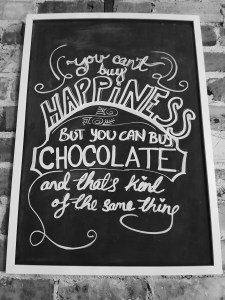 you can't
buy
HAPPINESS
BUT YOU CAN BUY
CHOCOLATE
and that's kind
of the same thing